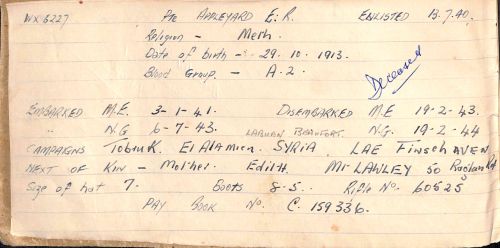 WX 6227 Pte APPLEYARD E. R. ENLISTED 13.7.40.
Religion - Meth.
Date of birth - 29. 10. 1913.
Blood Group. - A. 2.
Deceased
EMBARKED M.E. 3-1-41. DISEMBARKED M.E 19-2-43.
" N.G 6-7-43. LABUAN BEAUFORT. N.G. 19-2-44
CAMPAIGNS Tobruk. El Alamien. SYRIA. LAE Finsch AVEN
NEXT OF KIN - Mother. Edith. Mt LAWLEY 50
Size of hat 7. Boots 8-5. Rifle No. 60525
PAY BOOK No. C. 159336.